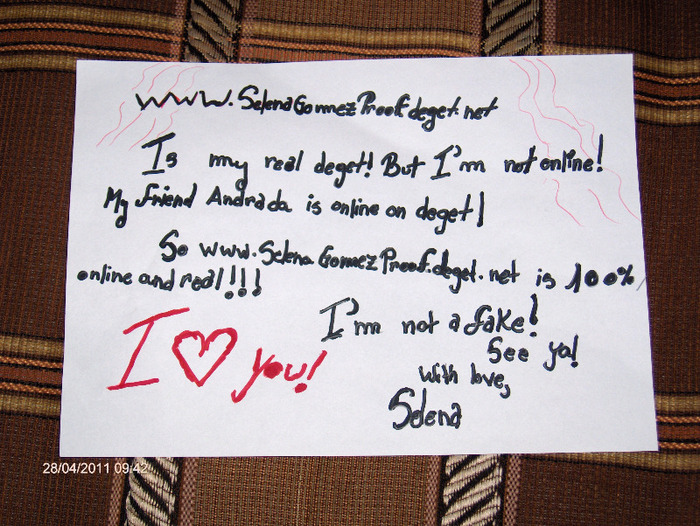 www.SelenaGomezProof.deget.net
Is my real deget! But I'm not online!
My friend Andrada is online on deget!
So www.SelenaGomezProof.deget.net is 100%
online and real!!!
I'm not a fake!
See ya!
I ♥ you!
With love,
Selena
28/04/2011 09:42